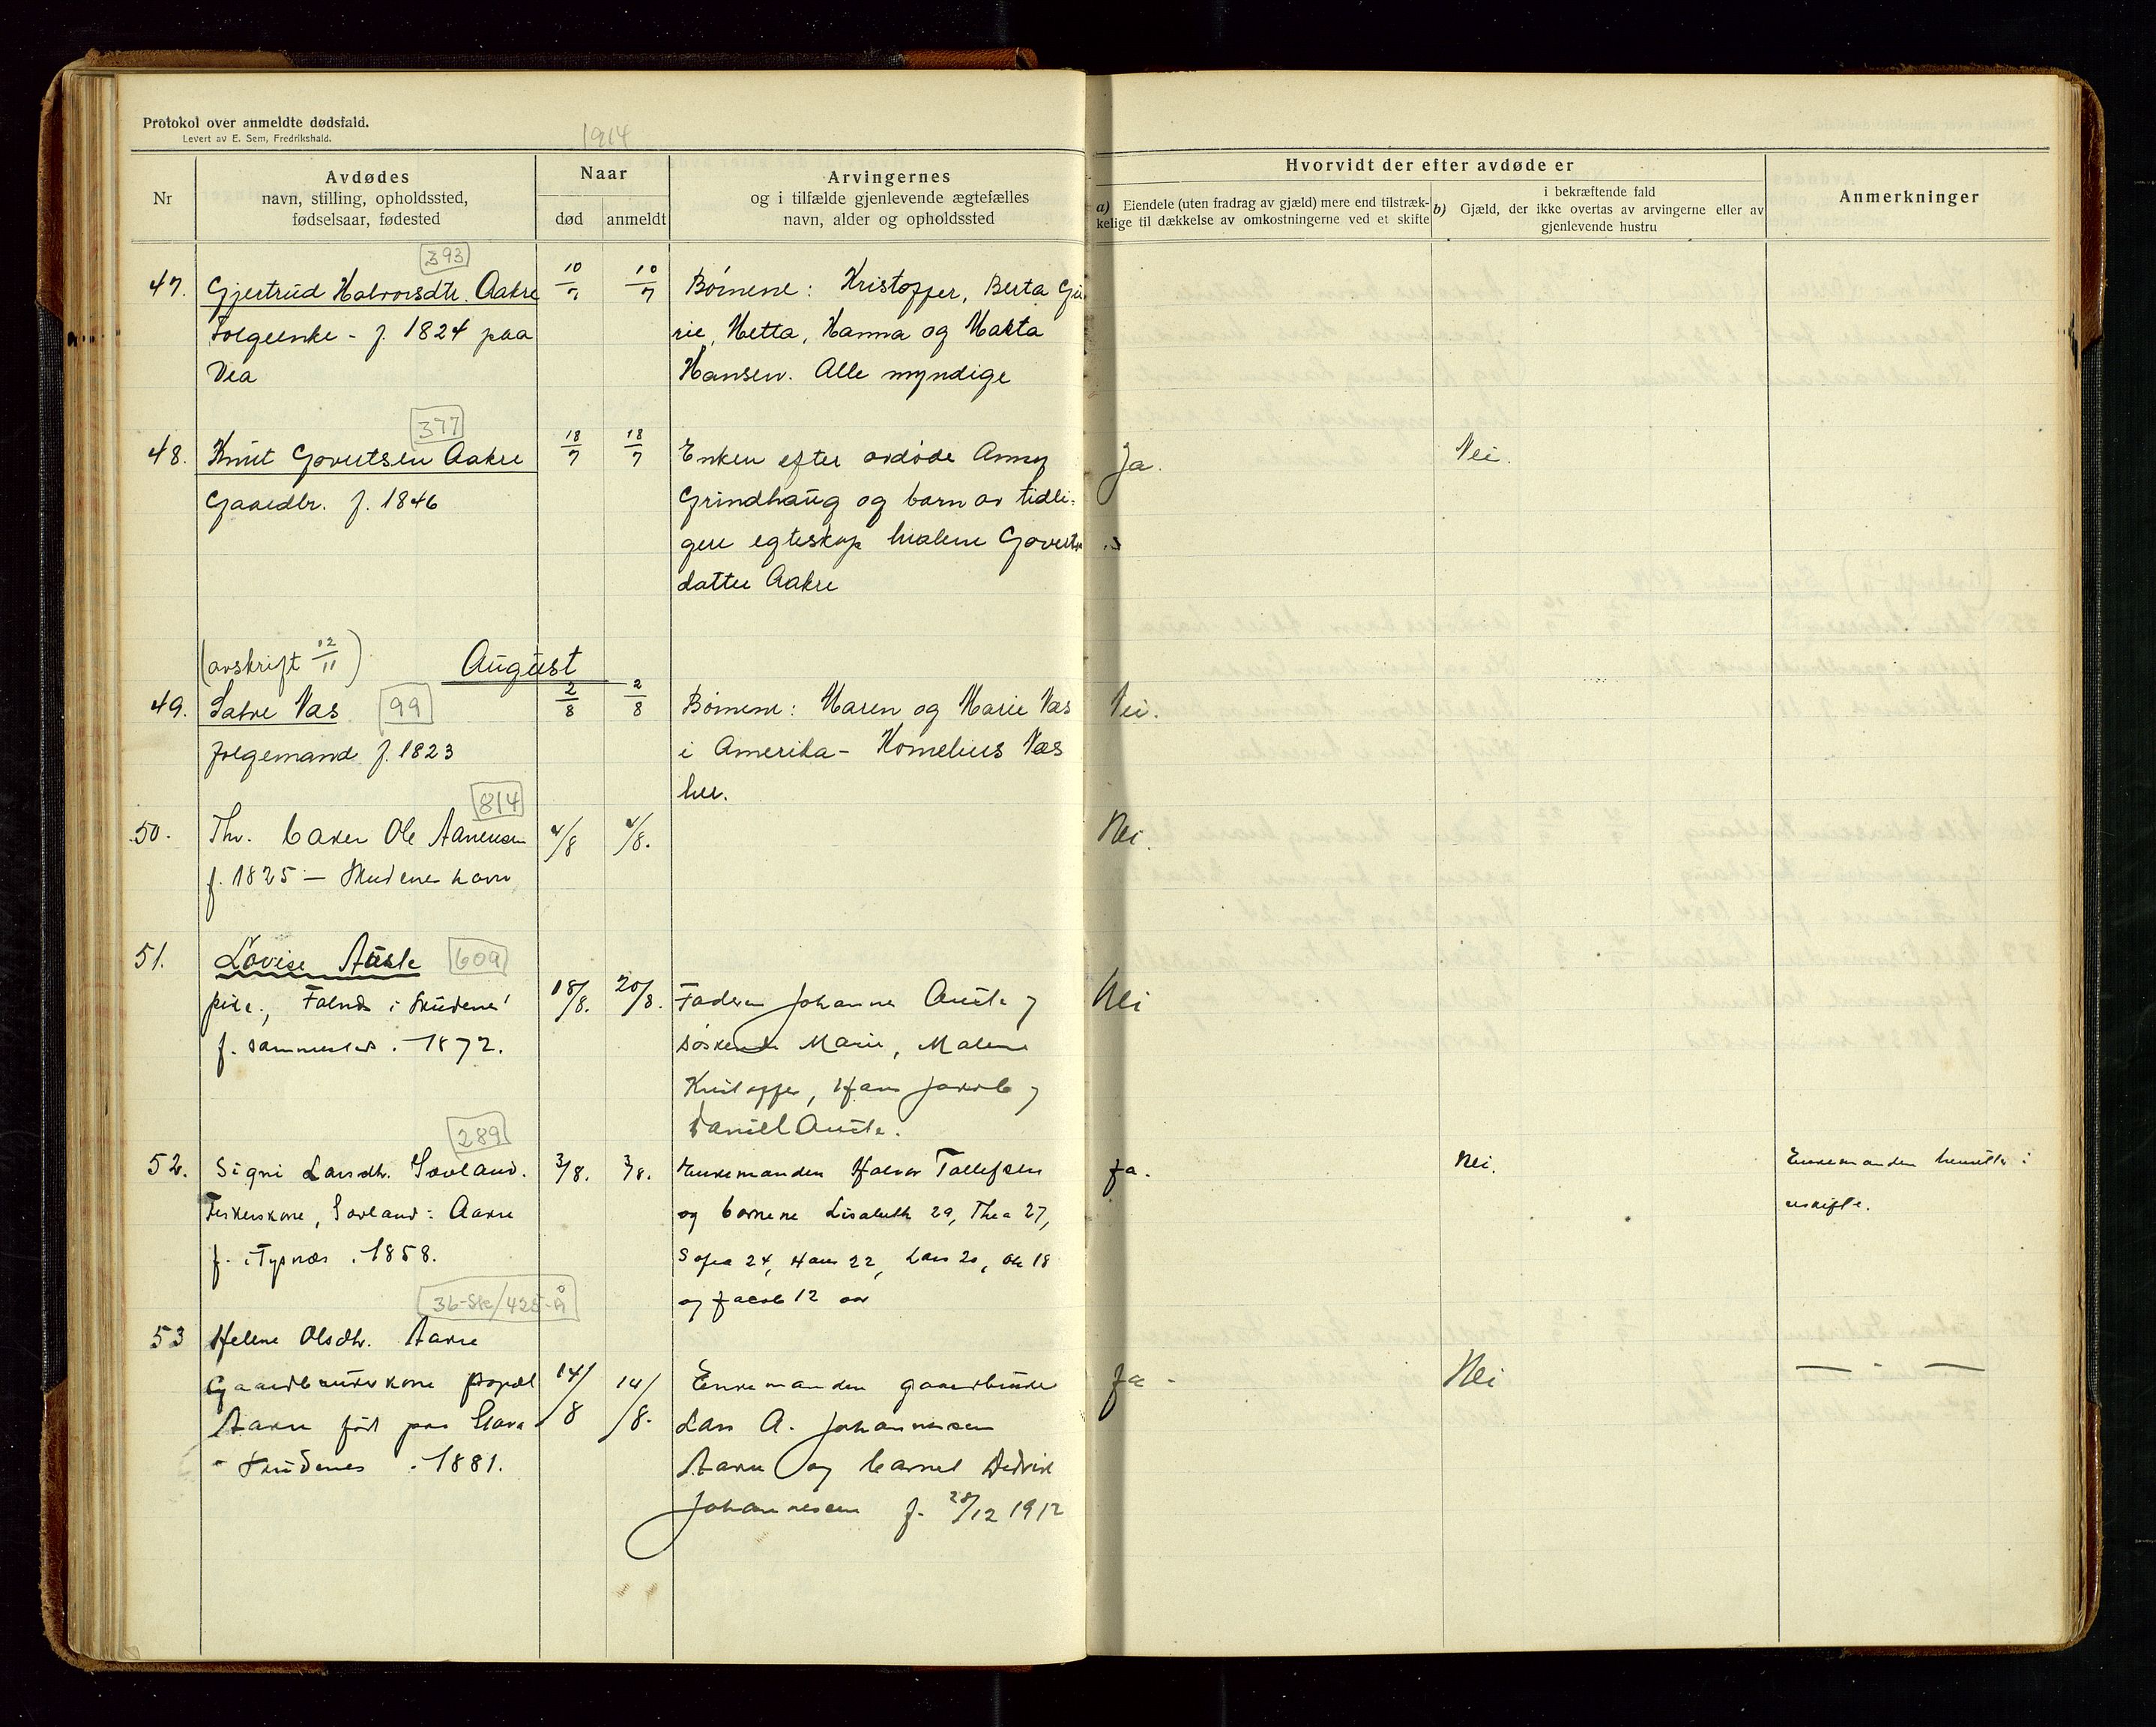 Protokol over anmeldte dødsfald.
Levert av E. Sem, Fredrikshald.
1914
Nr
Avdødes
navn, stilling, opholdssted,
fødselsaar, fødested
Naar
død
anmeldt
Arvingernes
og i tilfælde gjenlevende ægtefælles
navn, alder og opholdssted
Hvorvidt der efter avdøde er
a) Eiendele (uten fradrag av gjæld) mere end tilstræk-
kelige til dækkelse av omkostningerne ved et skifte
b) i bekræftende fald
Gjæld, der ikke overtas av arvingerne eller av
gjenlevende hustru
Anmerkninger
393
47. Gjertrud Halvorsdtr. Aakre 10/7 10/7 Børnene: Kristoffer, Berta Gu
Folgeenke - f. 1824 paa
rie, Metta, Hanna og Marta
Vea
Hansen. Alle myndige
377
48. Knut Govertsen Aakre 18/7 18/7 Enken efter avdøde Anny Ja. Nei.
Gaardbr. f. 1846
Grindhaug og barn av tidli-
gere egteskap Goverts
datter Aakre
(avskrift 12/11) August
49. Vas 99 2/8 2/8 Børnene: Maren og Marie Vas Nei.
folgemand f. 1823
i Amerika - Kornelius Vas
her.
814
50. Ole Aanensen 4/8 4/8. Nei.
f. 1825 — Skudeneshavn
51. Lovise Ausle 609
pike, Falnes i Skudenes 18/8. 20/8. Faderen Johannes og Nei
f. sammested. 1872.
søskende Marie, Malene
Kristoffer, Hans Jakob og
Daniel
289
52. Signi Larsdtr. Sørland. 3/8. 3/8. Enkemanden Halvor Tollefsen Ja. Nei. Enkemanden hensitter i
Fiskerkone, Sørland i Aakre
og børnene Lisabeth 29, Thea 27, uskifte.
f. i 1858.
Sofia 24, Hans 22, Lars 20, Ole 18
og Jacob 12 aar
36-Ske/425-Å
53 Helene Olsdtr. Aakre
Gaardbrukerkone 14/8 14/8. Enkemanden gaardbruker Ja - Nei — " —
Aakre født paa Stava
Lars A. Johannesen
i Skudenes. 1881.
Aakre og barnet Didrik
Johannesen f. 28/12 1912